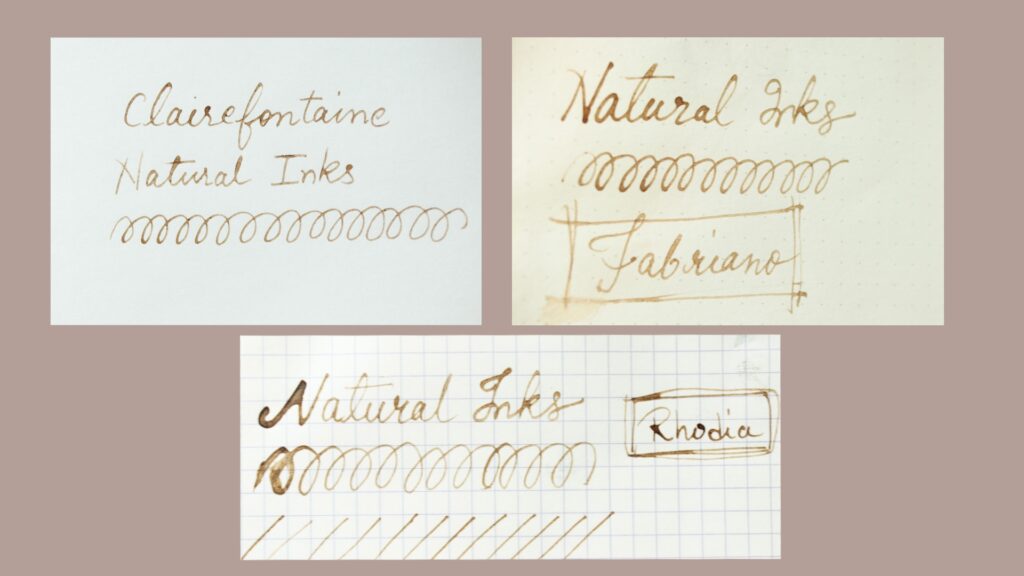 Clairefontaine
Natural Inks
Natural Inks
Fabriano
Natural Inks
Rhodia